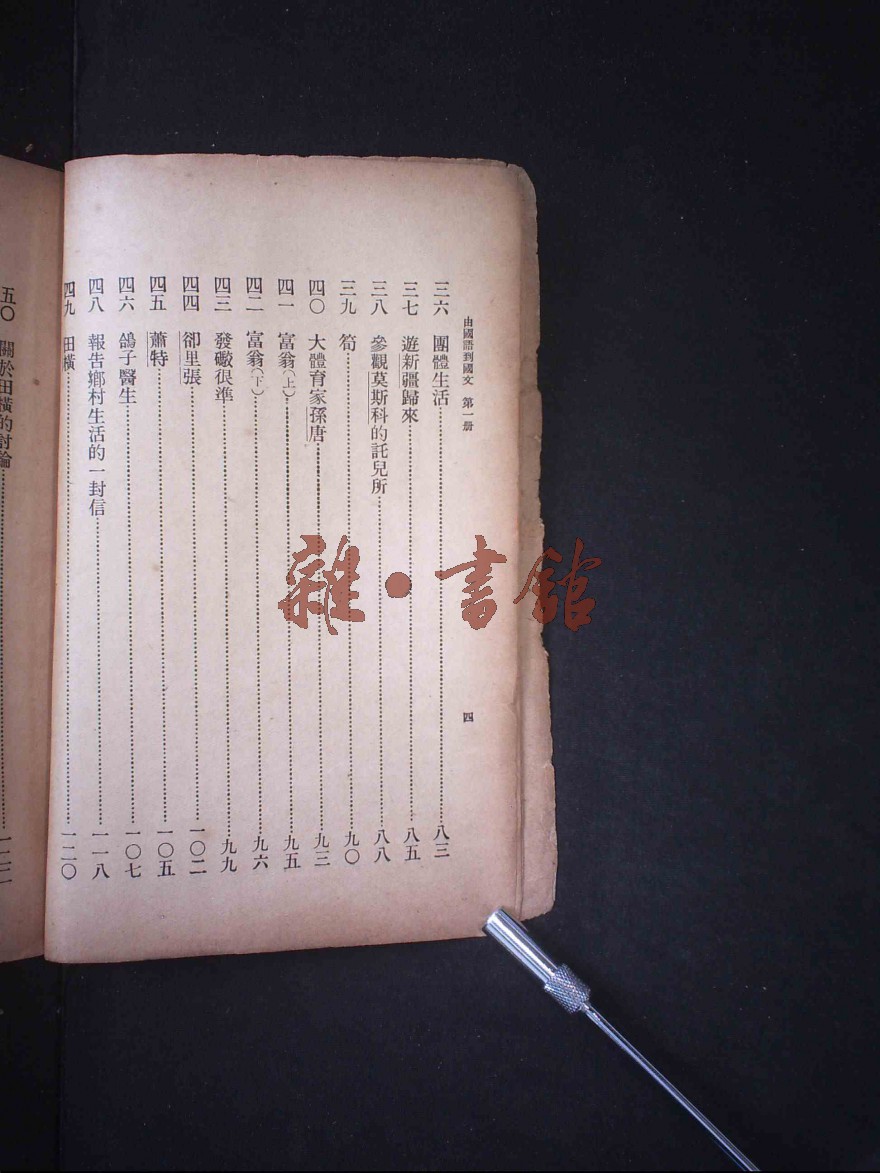 由國語到國文 第一册
四
三六 團體生活 八三
三七 遊新疆歸來 八五
三八 參觀莫斯科的託兒所 八八
三九 筍 九〇
四〇 大體育家孫唐 九三
四一 富翁(上) 九五
四二 富翁(下) 九六
四三 發礮很準 九九
四四 卻里張 一〇二
四五 蕭特 一〇五
四六 鴿子醫生 一〇七
四八 報告鄉村生活的一封信 一一八
四九 田橫 一二〇
五〇 關於田橫的討論
雜·書館